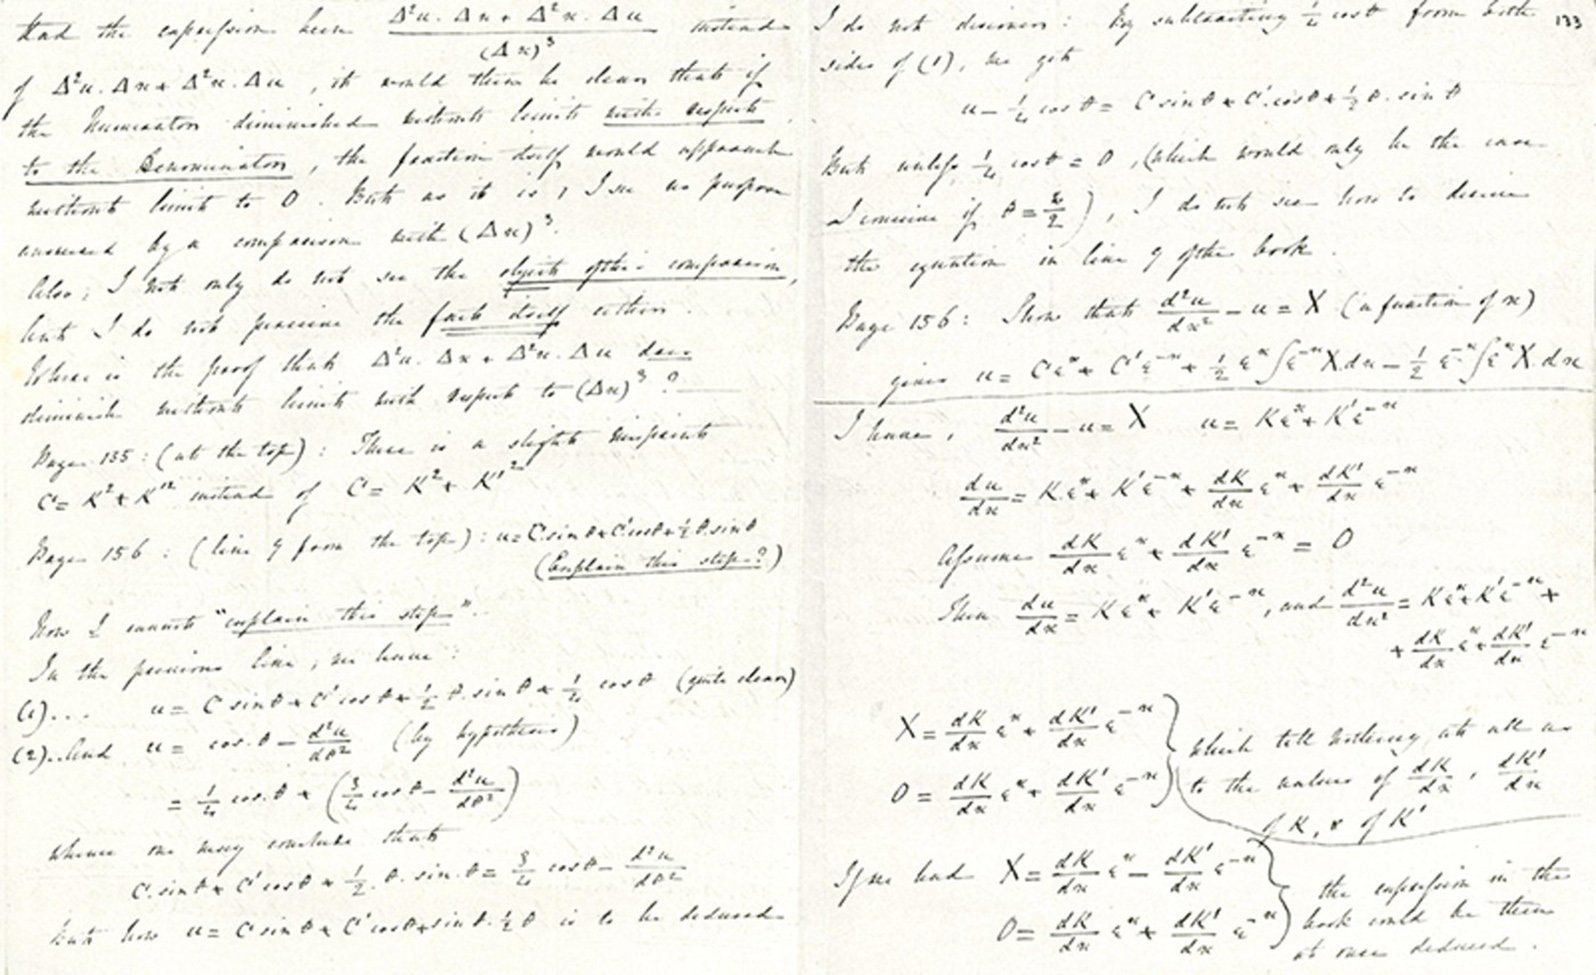 Had the expression been (Δ²u. Δx + Δ²x. Δu)/(Δx)³ instead
of Δ²u. Δx + Δ²x. Δu, it would then be clear that if
the Numerator diminished without limit with respect
to the Denominator, the fraction itself would approach
without limit to 0. But as it is, I see no purpose
answered by a comparison with (Δx)³.
Also; I not only do not see the object of the comparison,
but I do not perceive the fact itself either.
Where is the proof that Δ²u. Δx + Δ²x. Δu does
diminish without limit with respect to (Δx)³ ?
Page 135: (at the top): There is a slight misprint
C = K² + K'² instead of C = K² + K'²
Page 156: (line 9 from the top): u = C sin θ + C' cos θ + ½ θ. sin θ
(Explain this step?)
Now I cannot "explain this step".
In the previous line, we have:
(1)... u = C sin θ + C' cos θ + ½ θ. sin θ + ¼ cos θ (quite clear)
(2)..And u = cos. θ − d²u/dθ² (by hypothesis)
= ¼ cos. θ + (¾ cos θ − d²u/dθ²)
whence one may conclude that
C. sin θ + C' cos θ + ½. θ. sin. θ = ¾ cos θ − d²u/dθ²
But how u = C sin θ + C' cos θ + sin θ. ½ θ is to be deduced
133
I do not discover: By subtracting ¼ cos θ from both
sides of (1), we get
u − ¼ cos θ = C sin θ + C'. cos θ + ½ θ. sin θ
But unless ¼ cos θ = 0, (which would only be the case
I conceive if θ = π/2), I do not see how to derive
the equation in line 9 of the book.
Page 156: Show that d²u/dx² − u = X (a function of x)
gives u = Cεˣ + C'ε⁻ˣ + ½ εˣ∫ε⁻ˣX.dx − ½ ε⁻ˣ∫εˣX.dx
I have, d²u/dx² − u = X u = Kεˣ + K'ε⁻ˣ
du/dx = Kεˣ + K'ε⁻ˣ + dK/dx εˣ + dK'/dx ε⁻ˣ
Assume dK/dx εˣ + dK'/dx ε⁻ˣ = 0
Then du/dx = Kεˣ + K'ε⁻ˣ, and d²u/dx² = Kεˣ + K'ε⁻ˣ +
+ dK/dx εˣ + dK'/dx ε⁻ˣ
X = dK/dx εˣ + dK'/dx ε⁻ˣ
0 = dK/dx εˣ + dK'/dx ε⁻ˣ
which tell nothing at all as
to the values of dK/dx, dK'/dx
of K, & of K'
If we had X = dK/dx εˣ − dK'/dx ε⁻ˣ
0 = dK/dx εˣ + dK'/dx ε⁻ˣ
the expression in the
book could be then
at once deduced.